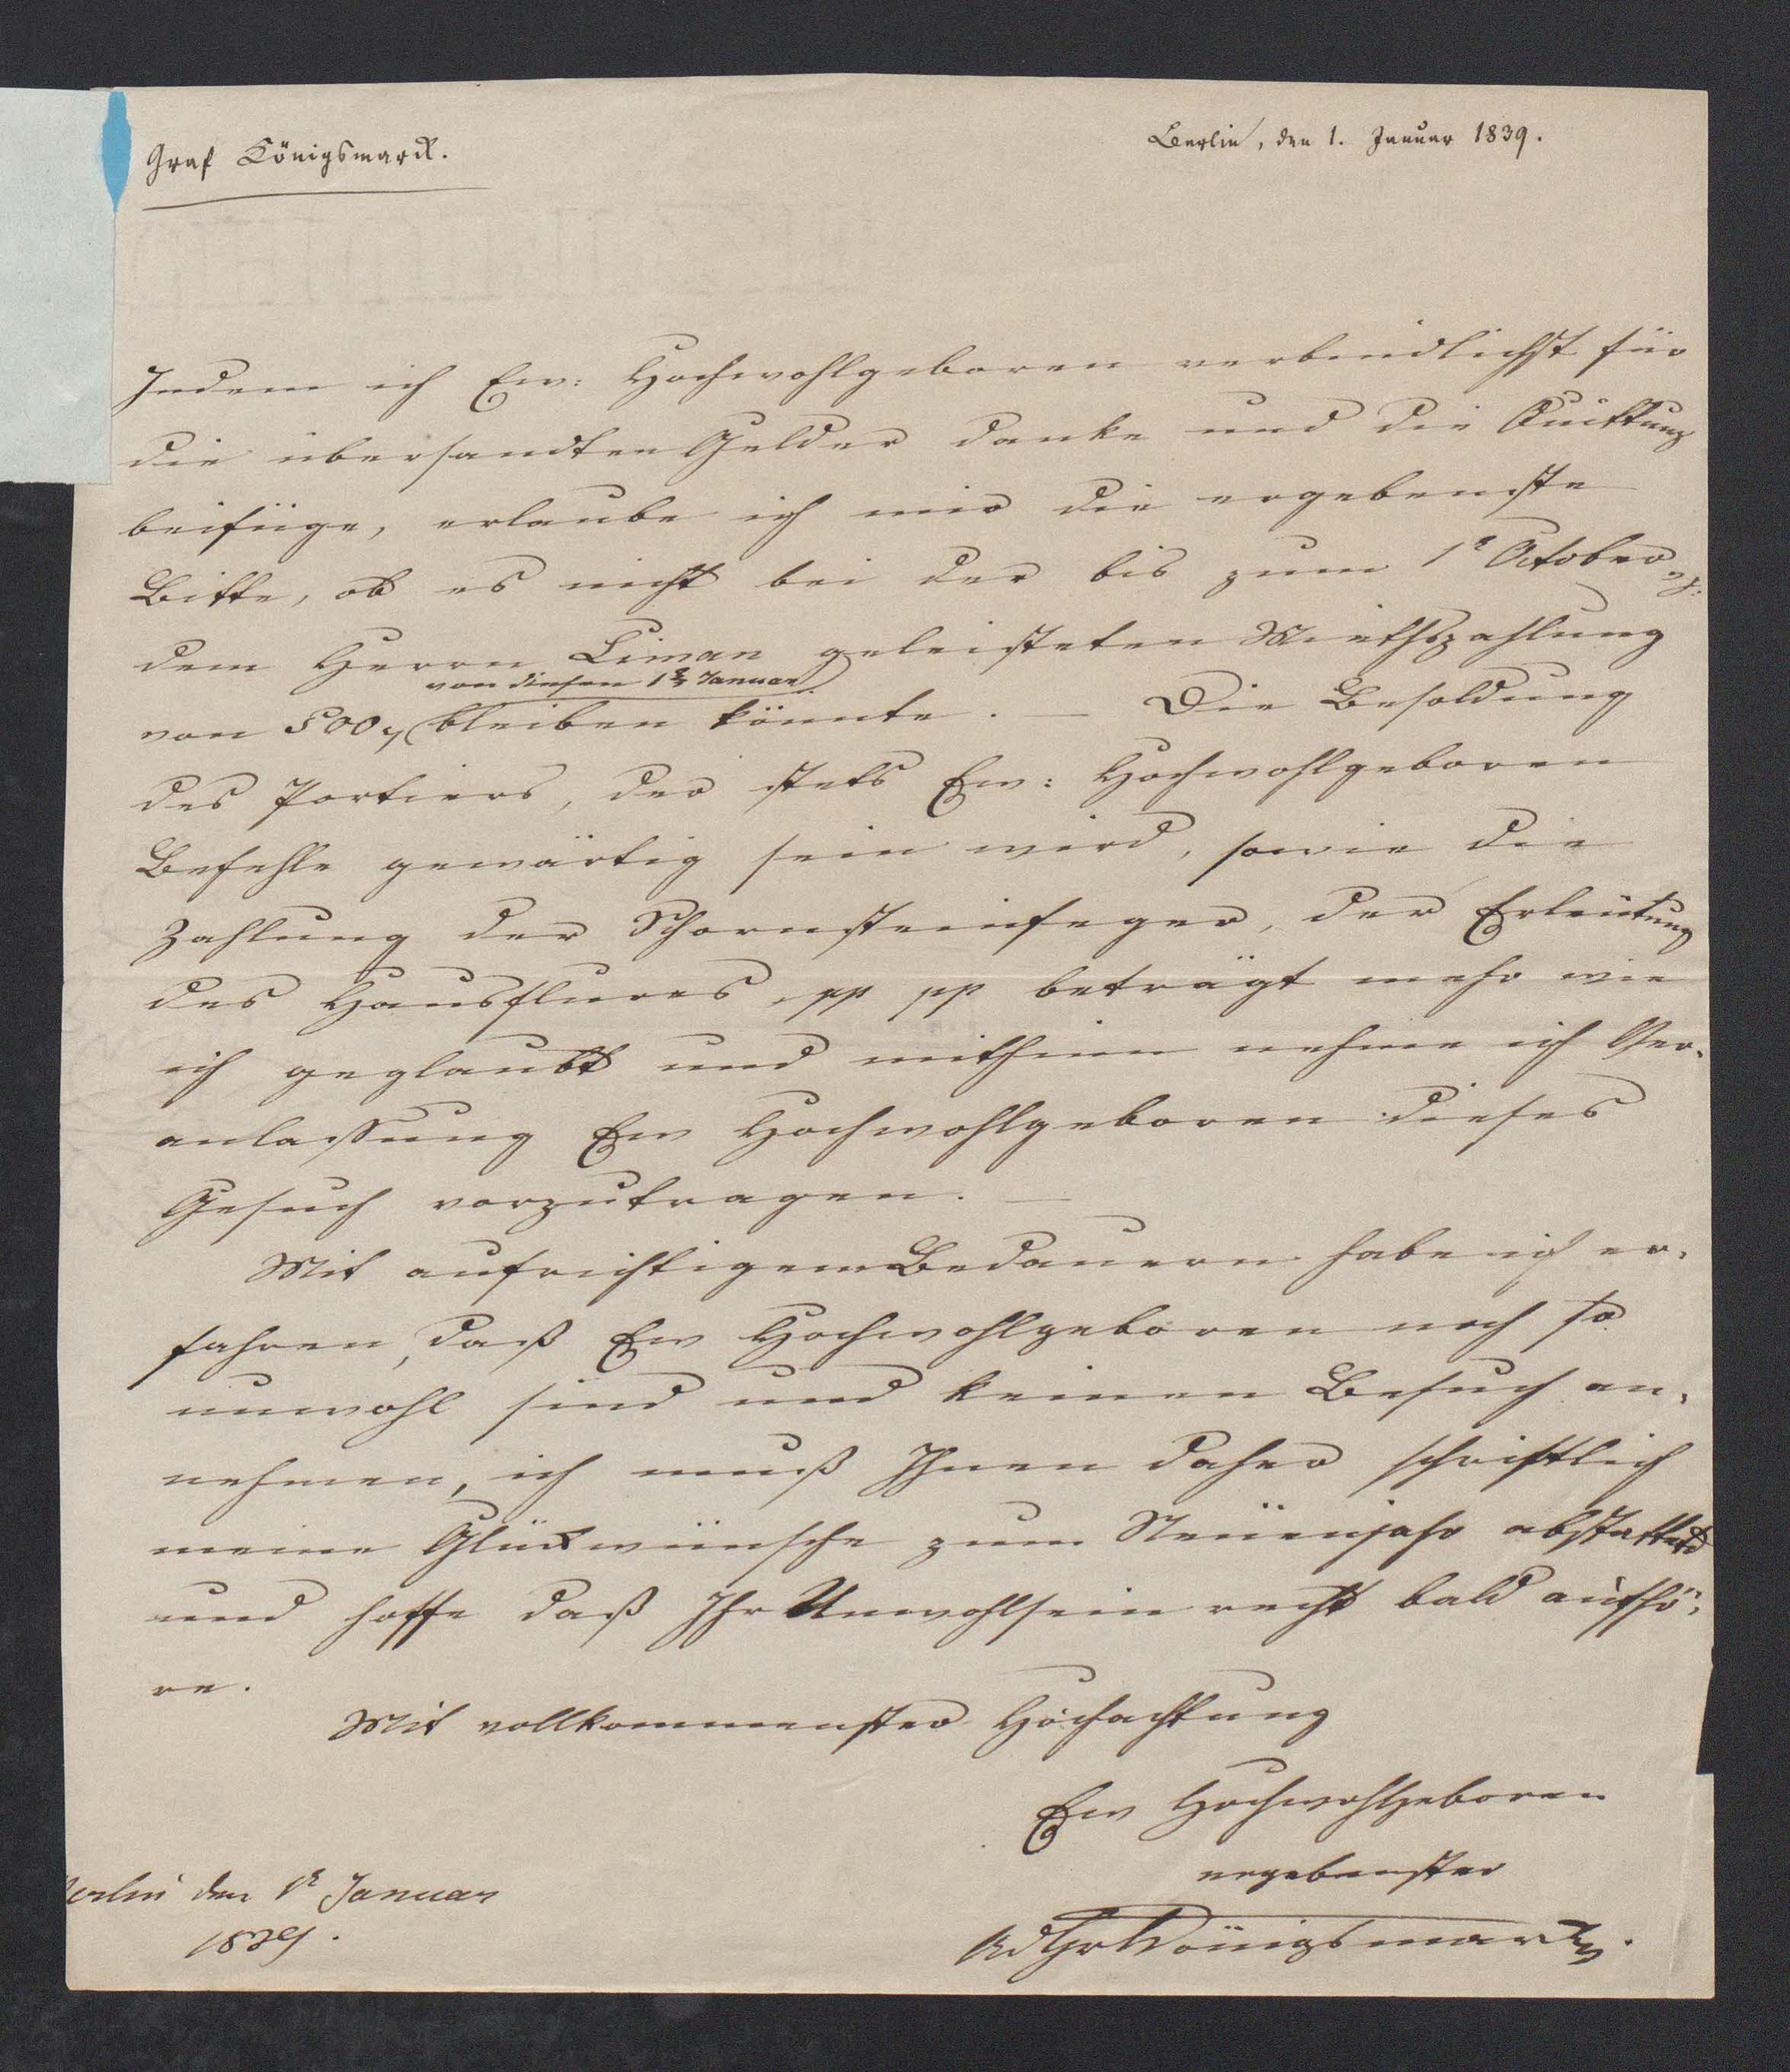 Graf Königsmarck.
Berlin, den 1. Januar 1839.
Indem ich Ew: Hochwohlgeboren verbindlichst für
die übersandten Gelder danke und die Quittung
beifüge, erlaube ich mir die ergebenste
Bitte, ob es nicht bei der bis zum 1t October
dem Herrn Liman geleisteten Miethszahlung
von diesen 1t Januar
von 500 bleiben könnte. — Die Besoldung
des Portiers, der stets Ew: Hochwohlgeboren
Befehle gewärtig sein wird, sowie die
Zahlung der Schornsteinfeger, der Erleutung
des Hausflures, pp pp beträgt mehr wie
ich geglaubt und mithinn nehme ich Ver-
anlassung Ew Hochwohlgeboren dieses
Gesuch vorzutragen. —
Mit aufrichtigem Bedauern habe ich er-
fahren, daß Ew Hochwohlgeboren noch so
unwohl sind und keinen Besuch an-
nehmen, ich muß Ihnen daher schriftlich
meine Glückwünsche zum Neuenjahr abstatten
und hoffe daß Ihr Unwohlsein recht bald aufhö-
re.
Mit vollkommenster Hochachtung
Ew Hochwohlgeboren
ergebenster
Ad Gr Königsmarck.
Berlin den 1t Januar
1839.